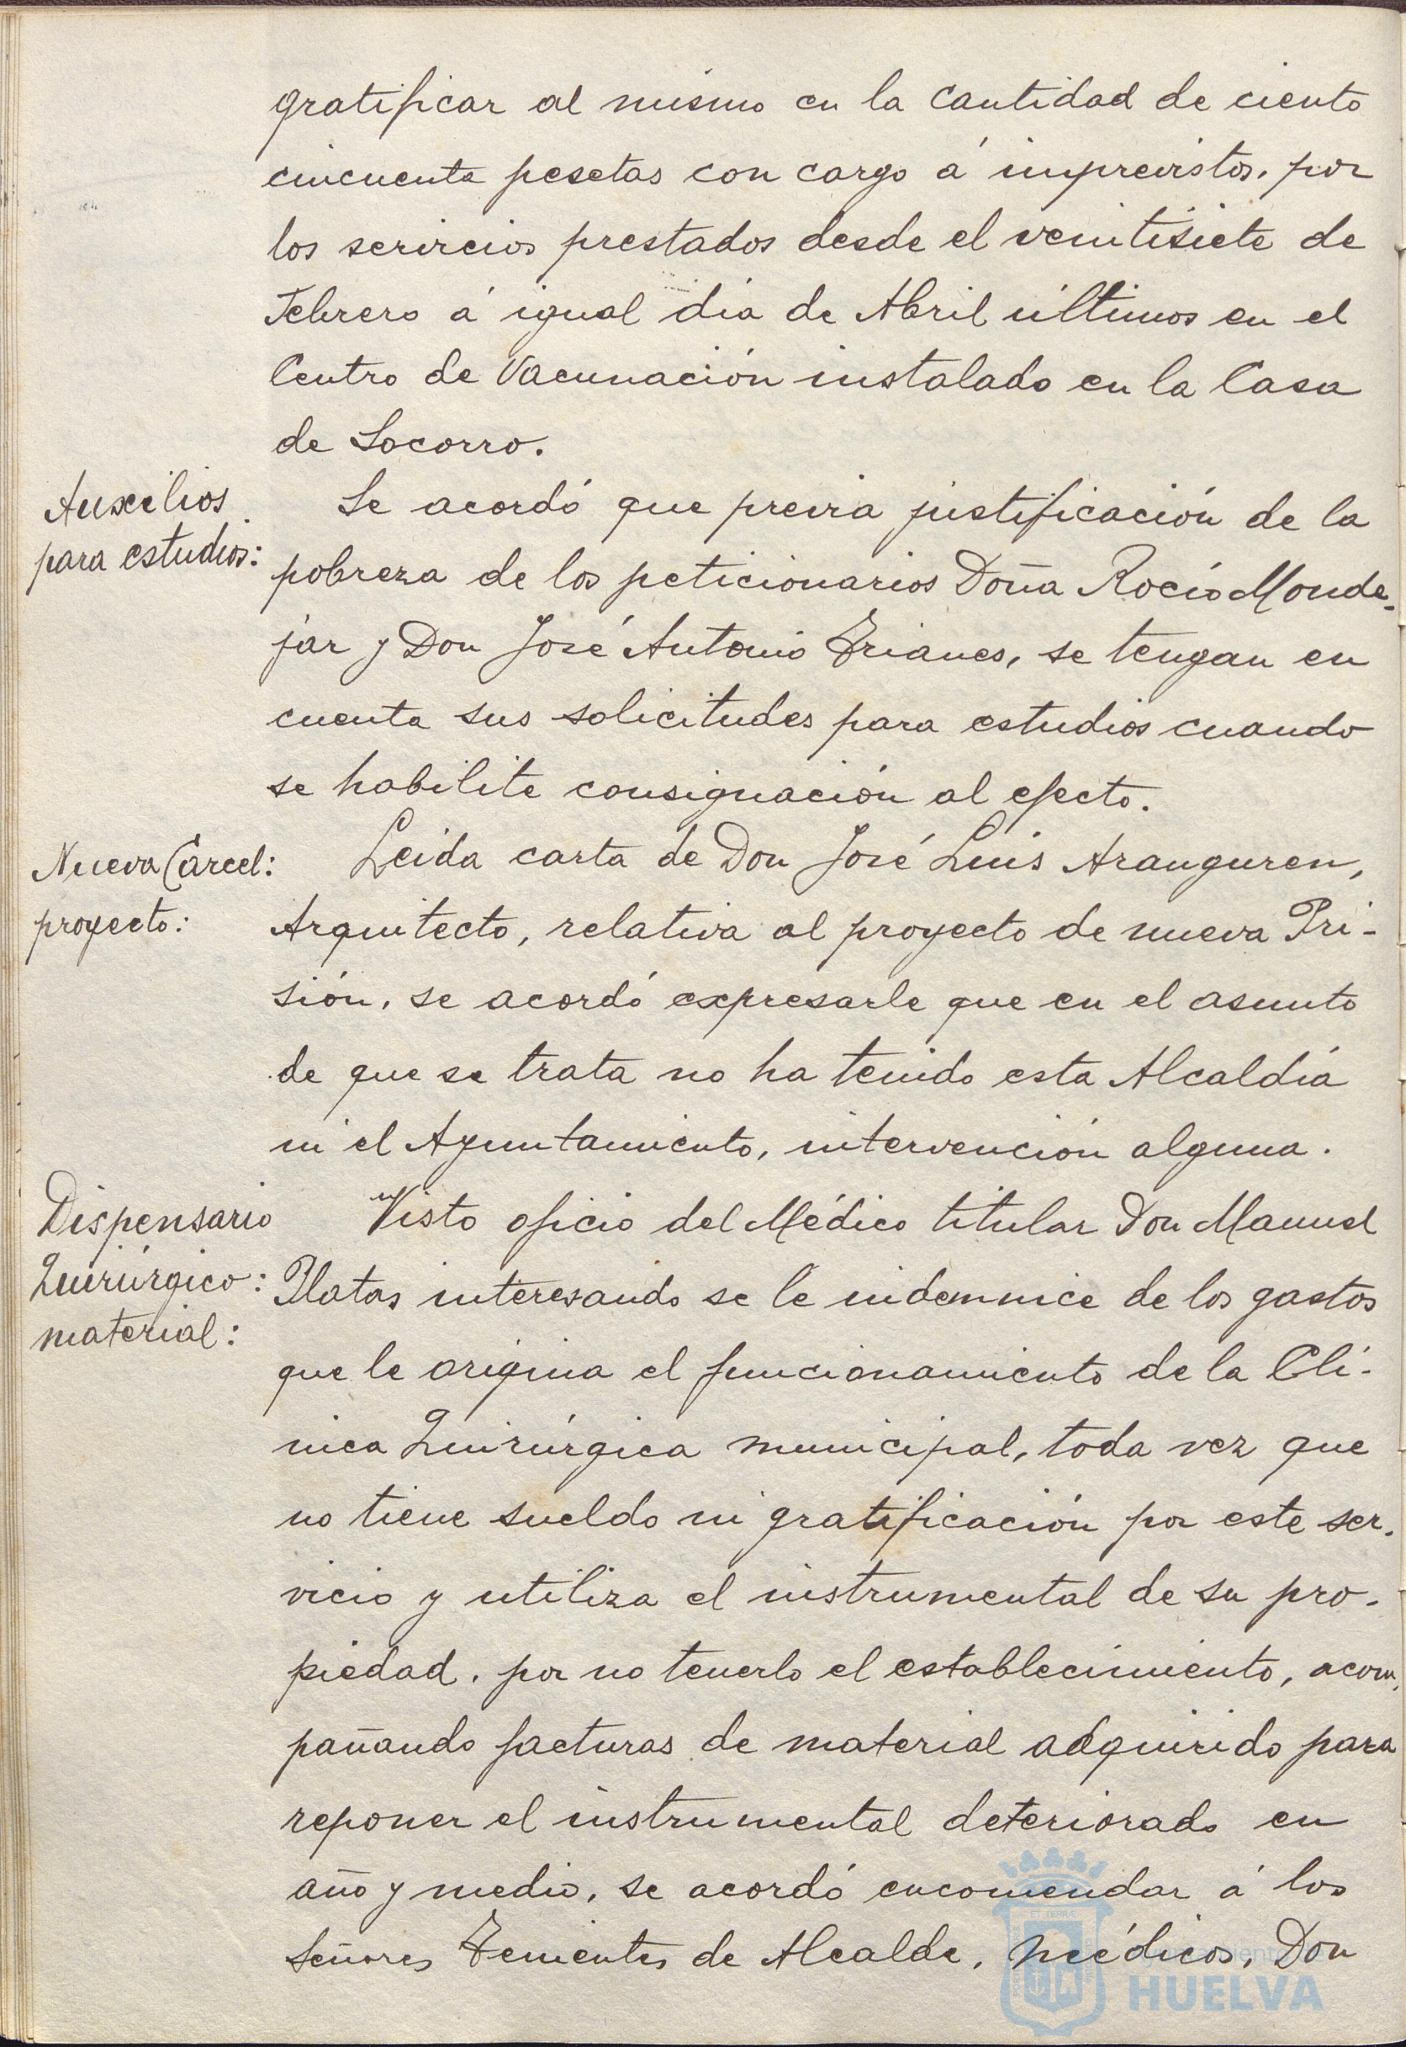 gratificar al mismo en la cantidad de ciento
cincuenta pesetas con cargo á imprevistos, por
los servicios prestados desde el veintisiete de
Febrero á igual día de Abril últimos en el
Centro de Vacunación instalado en la Casa
de Socorro.
Auxilios
para estudios:
Se acordó que previa justificación de la
pobreza de los peticionarios Doña Rocío Monde-
jar y Don José Antonio Trianes, se tengan en
cuenta sus solicitudes para estudios cuando
se habilite consignación al efecto.
Nueva Cárcel:
proyecto:
Leida carta de Don José Luis Aranguren,
Arquitecto, relativa al proyecto de nueva Pri-
sión, se acordó expresarle que en el asunto
de que se trata no ha tenido esta Alcaldía
ni el Ayuntamiento, intervención alguna.
Dispensario
Quirúrgico:
material:
Visto oficio del Médico titular Don Manuel
Platas interesando se le indemnice de los gastos
que le origina el funcionamiento de la Clí-
nica Quirúrgica municipal, toda vez que
no tiene sueldo ni gratificación por este ser-
vicio y utiliza el instrumental de su pro-
piedad, por no tenerlo el establecimiento, acom-
pañando facturas de material adquirido para
reponer el instrumental deteriorado en
año y medio, se acordó encomendar á los
Señores Tenientes de Alcalde, Médicos, Don
HUELVA